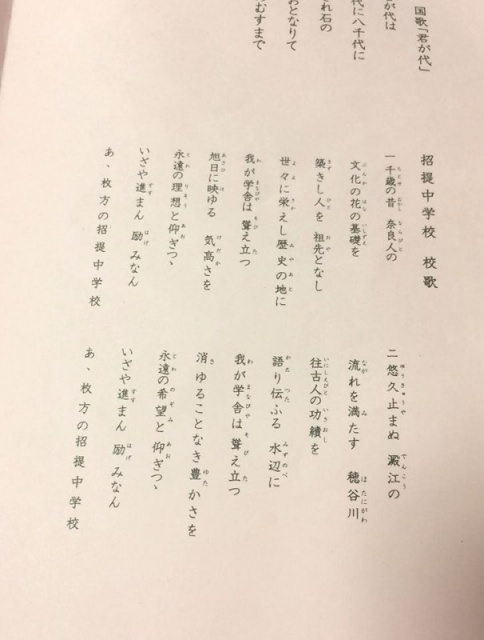 国歌「君が代」
が代は
代に八千代に
れ石の
おとなりて
むすまで
招提中学校 校歌
一 千歳の昔 奈良人の
文化の花の基礎を
築きし人を 祖先となし
世々に栄えし歴史の地に
我が学舎は 聳え立つ
旭日に映ゆる 気高さを
永遠の理想と仰ぎつゝ
いざや進まん 励みなん
あゝ枚方の招提中学校
二 悠久止まぬ 澱江の
流れを満たす 穂谷川
往古人の功績を
語り伝ふる 水辺に
我が学舎は 聳え立つ
消ゆることなき豊かさを
永遠の希望と仰ぎつゝ
いざや進まん 励みなん
あゝ枚方の招提中学校